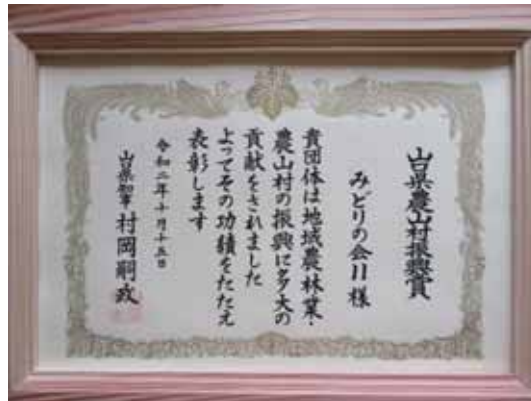 山口県農山村振興賞
みどりの会11様
貴団体は地域農林業・
農山村の振興に多大の
貢献をされました
よってその功績をたたえ
表彰します
令和二年十月十五日
山口県知事 村岡嗣政